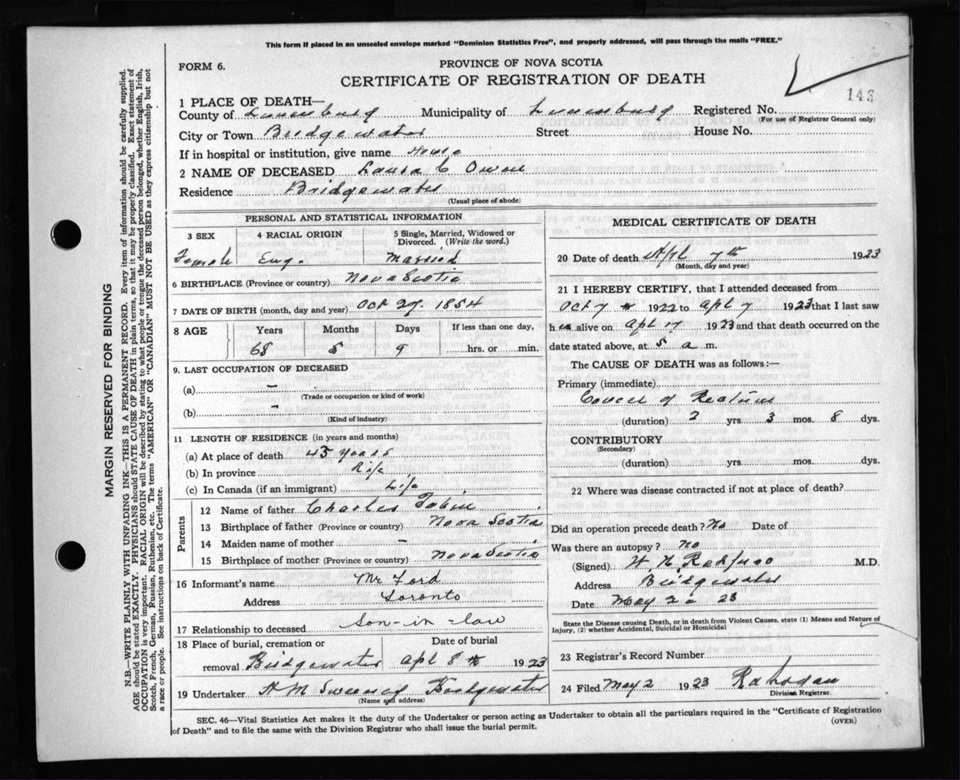 This form if placed in an unsealed envelope marked "Dominion Statistics Free", and properly addressed, will pass through the mails "FREE."
FORM 6.
PROVINCE OF NOVA SCOTIA
CERTIFICATE OF REGISTRATION OF DEATH
143
1 PLACE OF DEATH—
County of Lunenburg Municipality of Lunenburg Registered No.
(For use of Registrar General only)
City or Town Bridgewater Street House No.
If in hospital or institution, give name Home
2 NAME OF DECEASED Laura C Owen
Residence Bridgewater
(Usual place of abode)
PERSONAL AND STATISTICAL INFORMATION
3 SEX 4 RACIAL ORIGIN 5 Single, Married, Widowed or Divorced. (Write the word.)
Female Eng. Married
6 BIRTHPLACE (Province or country) Nova Scotia
7 DATE OF BIRTH (month, day and year) Oct 29. 1854
8 AGE Years Months Days If less than one day,
68 5 9 hrs. or min.
9. LAST OCCUPATION OF DECEASED
(a) –
(Trade or occupation or kind of work)
(b) –
(Kind of industry)
11 LENGTH OF RESIDENCE (in years and months)
(a) At place of death 45 years
(b) In province Life
(c) In Canada (if an immigrant) Life
Parents
12 Name of father Charles Tobin
13 Birthplace of father (Province or country) Nova Scotia
14 Maiden name of mother –
15 Birthplace of mother (Province or country) Nova Scotia
16 Informant's name Mr Ford
Address Toronto
17 Relationship to deceased son-in-law
18 Place of burial, cremation or removal Bridgewater
Date of burial Apl 8th 1923
19 Undertaker H M Sweeney Bridgewater
(Name and address)
MEDICAL CERTIFICATE OF DEATH
20 Date of death Apl 7th 1923
(Month, day and year)
21 I HEREBY CERTIFY, that I attended deceased from
Oct 7 1922 to Apl 7 1923 that I last saw
h er alive on Apl 7 1923 and that death occurred on the
date stated above, at 5 a m.
The CAUSE OF DEATH was as follows:—
Primary (immediate)
Cancer of Rectum
(duration) 2 yrs 3 mos. 8 dys.
CONTRIBUTORY
(Secondary)
(duration) yrs. mos. dys.
22 Where was disease contracted if not at place of death?
Did an operation precede death? No Date of
Was there an autopsy? No
(Signed) M.D.
Address Bridgewater
Date May 2 23
State the Disease causing Death, or in death from Violent Causes, state (1) Means and Nature of
Injury, (2) whether Accidental, Suicidal or Homicidal
23 Registrar's Record Number
24 Filed May 2 1923
Division Registrar.
SEC. 46—Vital Statistics Act makes it the duty of the Undertaker or person acting as Undertaker to obtain all the particulars required in the "Certificate of Registration
of Death" and to file the same with the Division Registrar who shall issue the burial permit.
(OVER)
MARGIN RESERVED FOR BINDING
N.B.—WRITE PLAINLY WITH UNFADING INK—THIS IS A PERMANENT RECORD. Every item of information should be carefully supplied.
AGE should be stated EXACTLY. PHYSICIANS should STATE CAUSE OF DEATH in plain terms, so that it may be properly classified. Exact statement of
OCCUPATION is very important. RACIAL ORIGIN will be described by stating to what people or tongue the deceased person belonged, whether English, Irish,
Scotch, French, German, Russian, Ruthenian, etc. The terms "AMERICAN" OR "CANADIAN" MUST NOT BE USED as they express citizenship but not
a race or people. See instructions on back of Certificate.